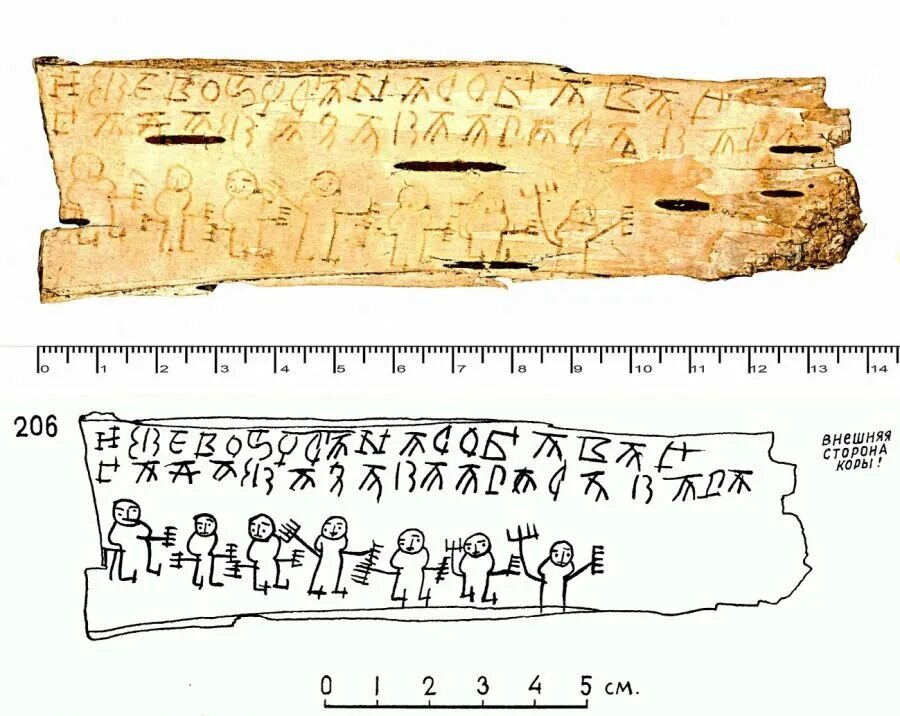 ИЖЕВОЅЧСѦНѦСОБѦВѦН
ГѦАѦЖѦЗѦВѦѦРѦСѦВѦРѦ
0 1 2 3 4 5 6 7 8 9 10 11 12 13 14
206
ИЖЕВОЅЧСѦНѦСОБѦВѦН
ГѦАѦЖѦЗѦВѦѦРѦСѦВѦРѦ
ВНЕШНЯЯ
СТОРОНА
КОРЫ!
0 1 2 3 4 5 СМ.